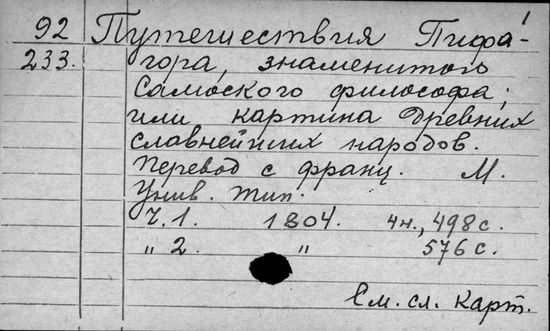 92 Путешествия Пифа-
233. гора, знаменитого
Само́ского философа;
или картина древних
славнейших народов.
Перевод с франц. М.
Унив. тип.
Ч. 1. 1804. 4н., 498 с.
„ 2. „ 576 с.
См. сл. карт.